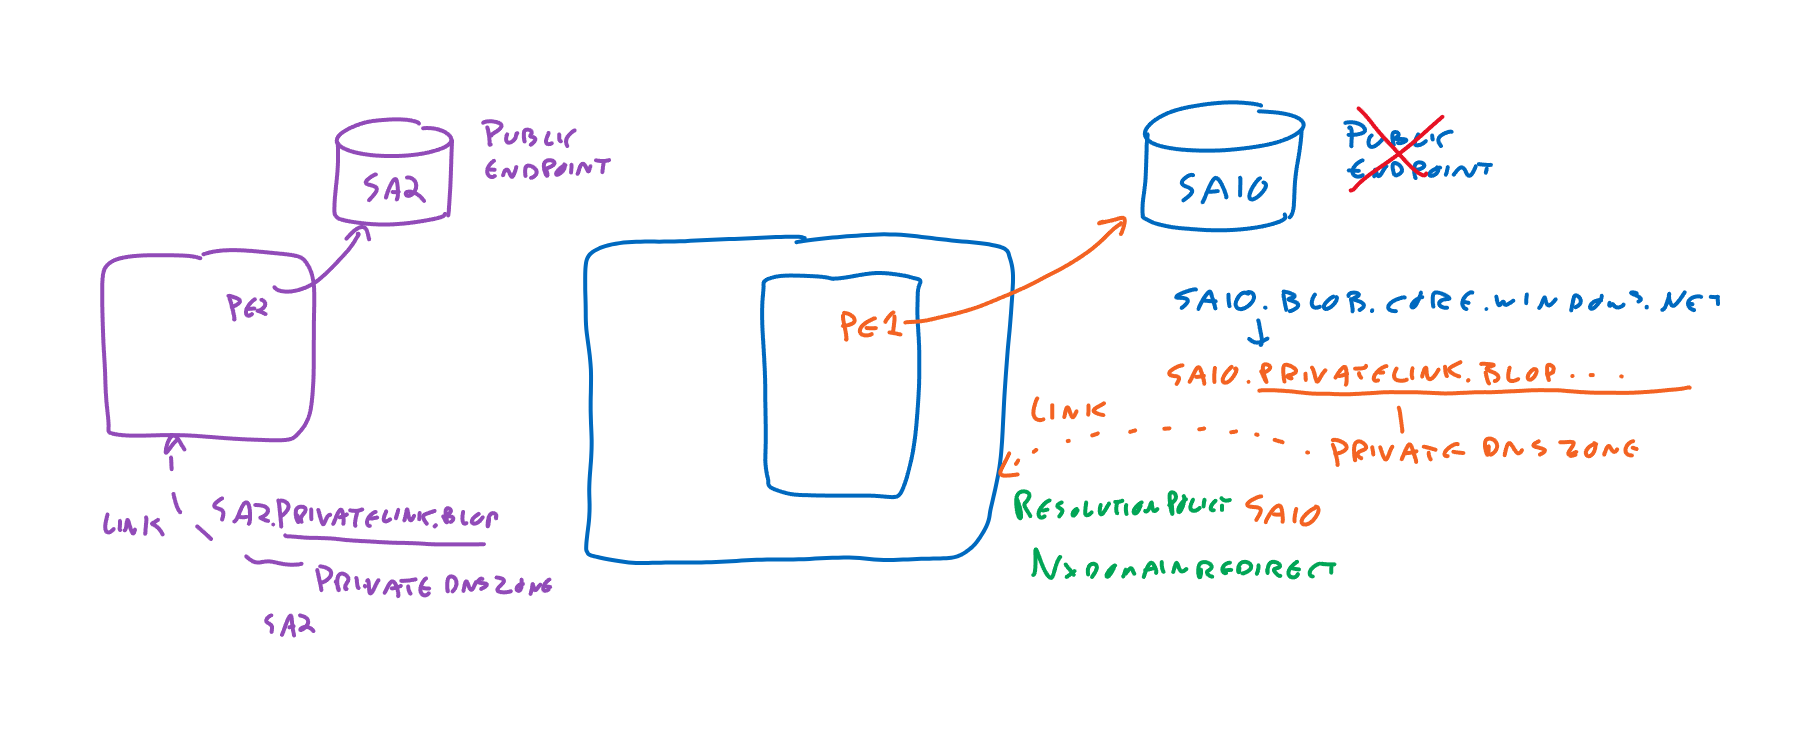 PUBLIC
ENDPOINT
SA2
PE2
LINK
SA2.PRIVATELINK.BLOP
PRIVATE DNS ZONE
SA2
PE1
SA10
PUBLIC
ENDPOINT
SA10.BLOB.CORE.WINDOWS.NET
SA10.PRIVATELINK.BLOP...
LINK
PRIVATE DNS ZONE
RESOLUTIONPOLICY SA10
NXDOMAINREDIRECT